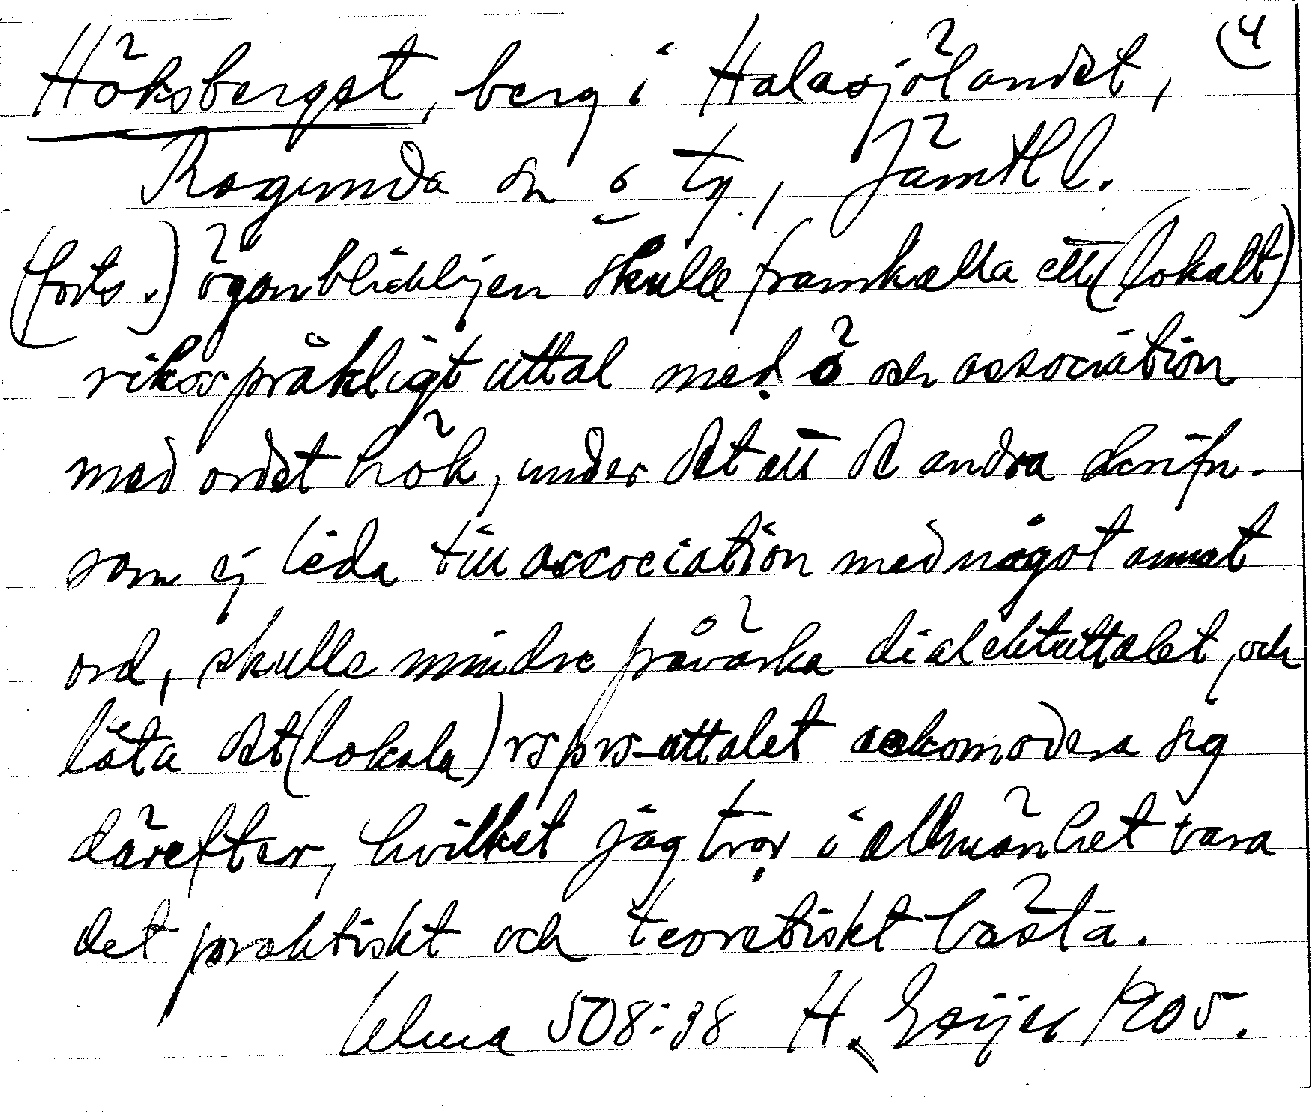 (4
Höksberget, berg i Halasjölandet,
Ragunda sn o. tg., Jämtl l.
(forts.) ögonblickligen skulle framkalla ett (lokalt)
riksspråkligt uttal med ö och association
med ordet hök, under det att de andra skrifn.
som ej leda till association med något annat
ord, skulle mindre påvärka dialektuttalet, och
låta det (lokala) rsprs-uttalet ackomodera sig
därefter, hvilket jag tror i allmänhet vara
det praktiskt och teoretiskt bästa.
Ulma 508:38 H. Geijer 1905.